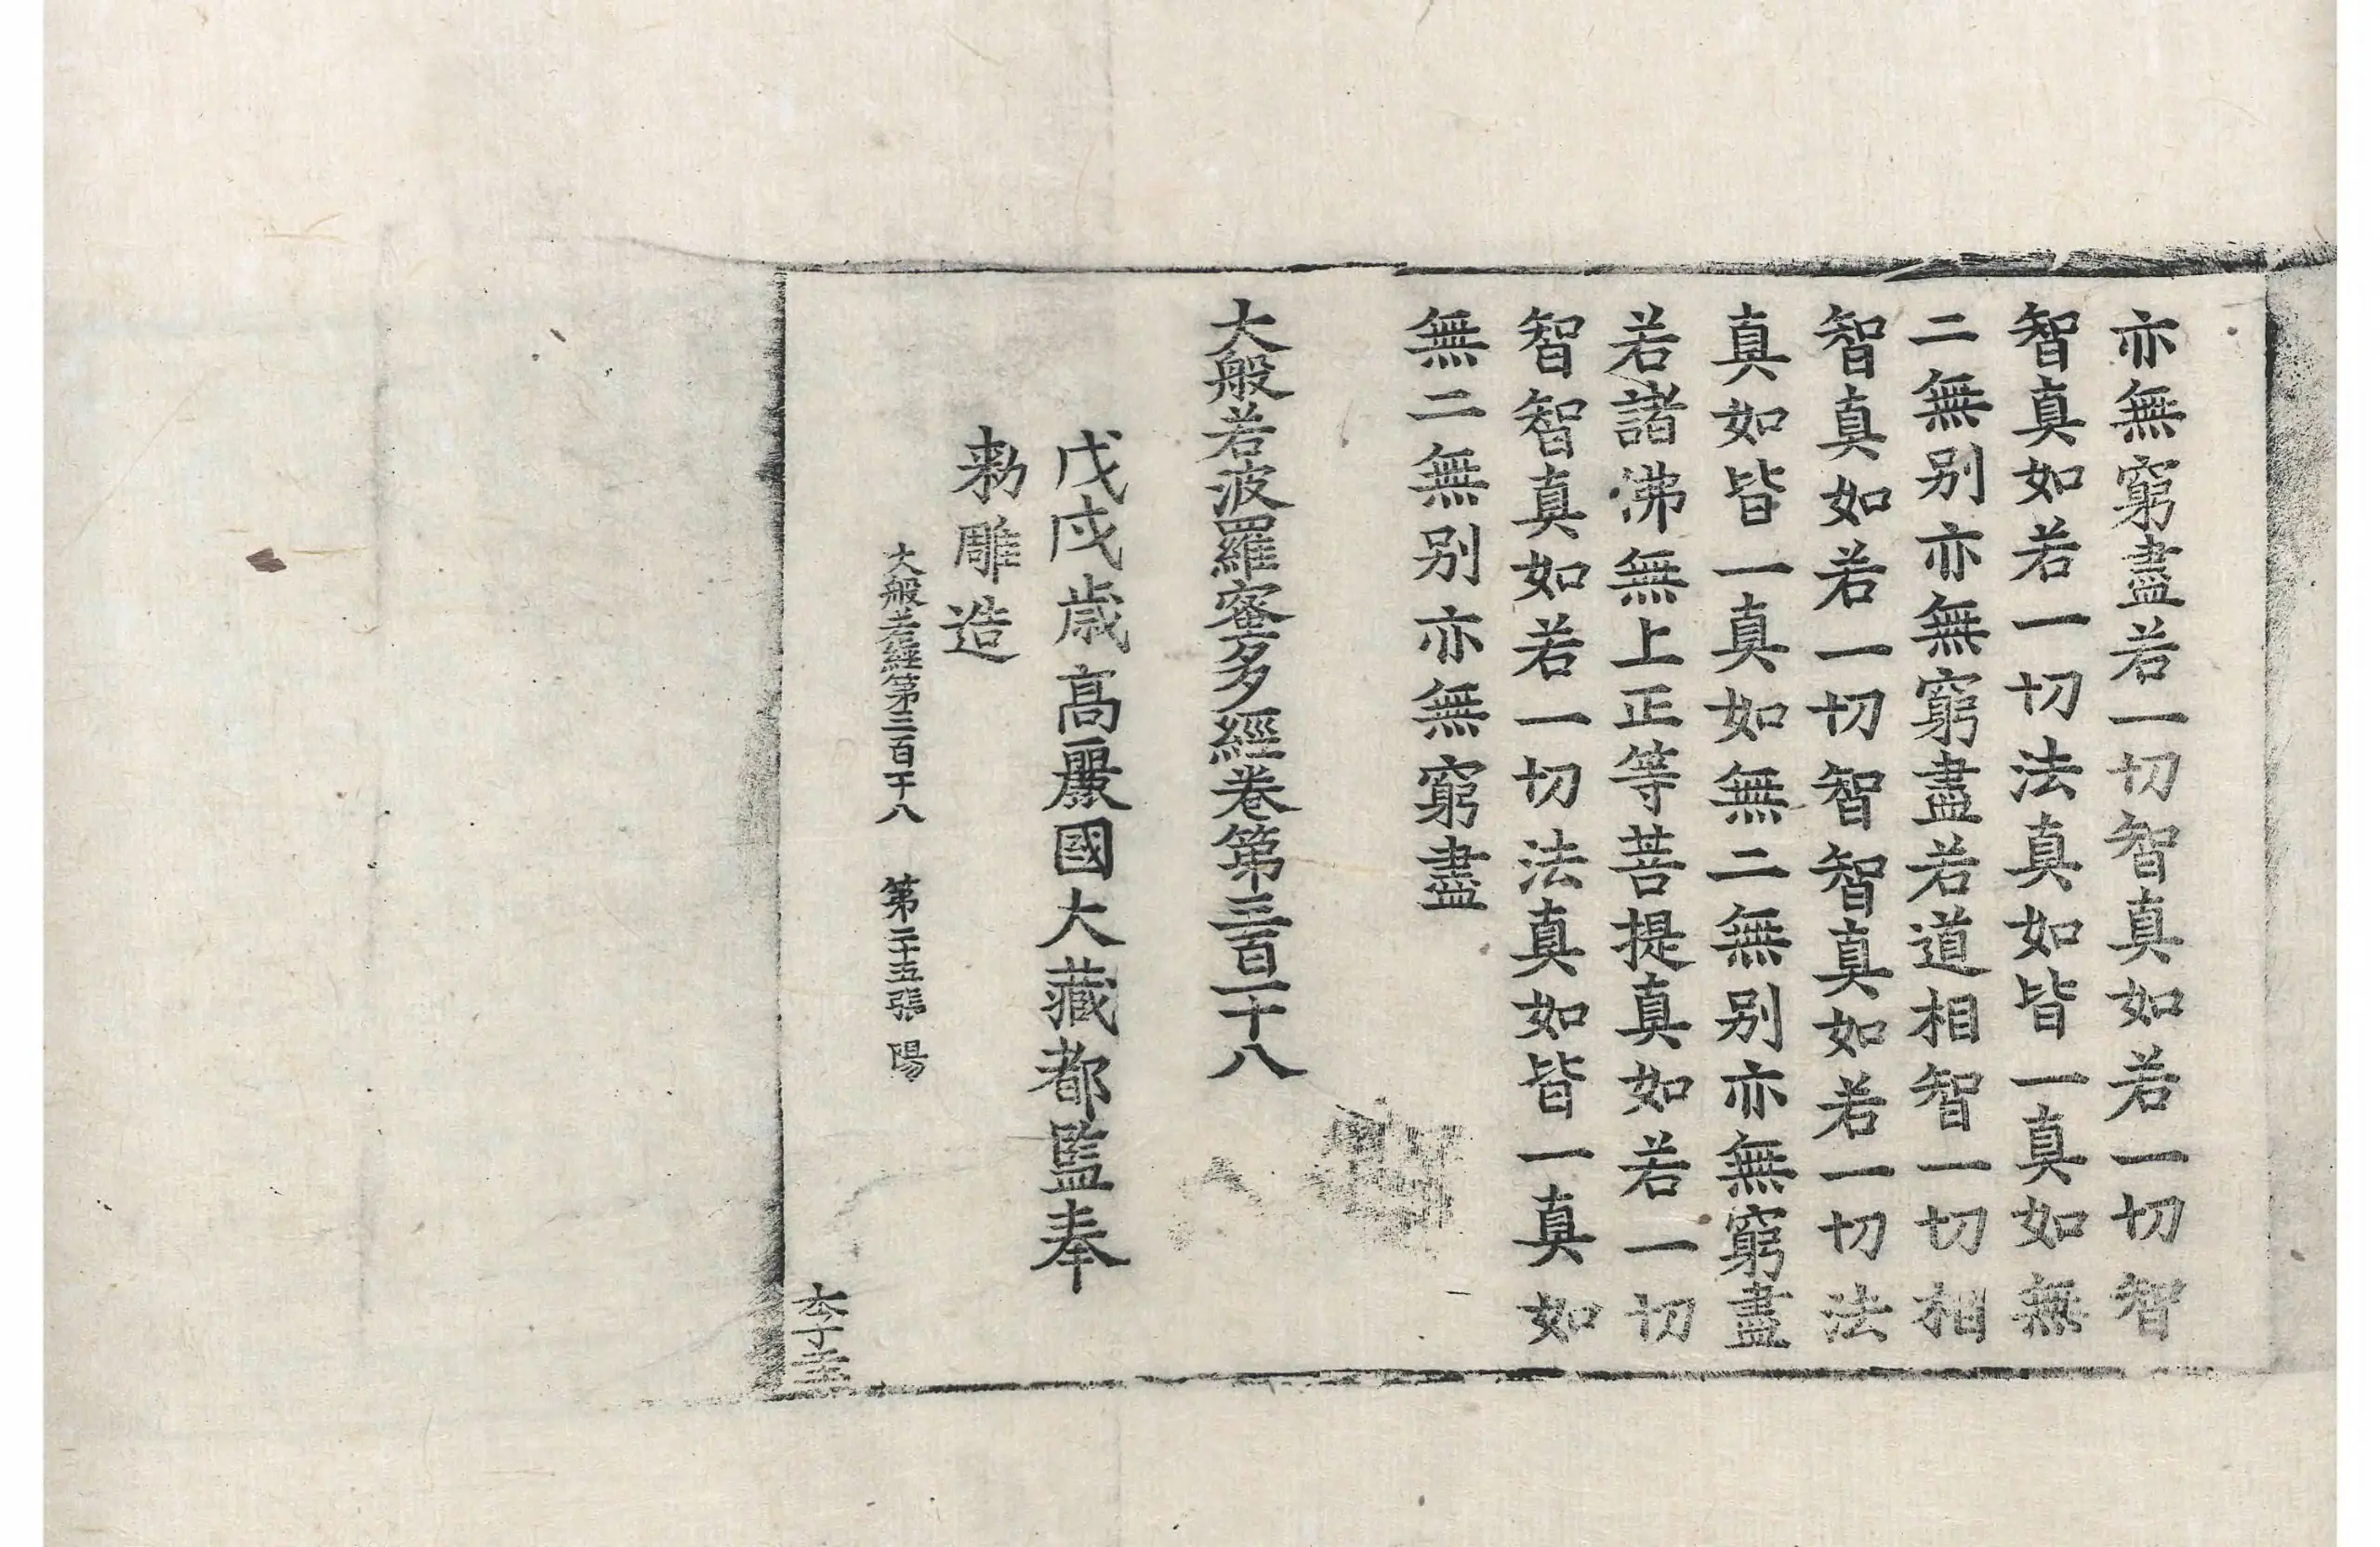 亦無窮盡若一切智真如若一切智
智真如若一切法真如皆一真如無
二無别亦無窮盡若道相智一切相
智真如若一切智智真如若一切法
真如皆一真如無二無别亦無窮盡
若諸佛無上正等菩提真如若一切
智智真如若一切法真如皆一真如
無二無别亦無窮盡
大般若波羅蜜多經卷第三百一十八
戊戌歲高麗國大藏都監奉
勑雕造
大般若經第三百一十八 第二十五張 陽